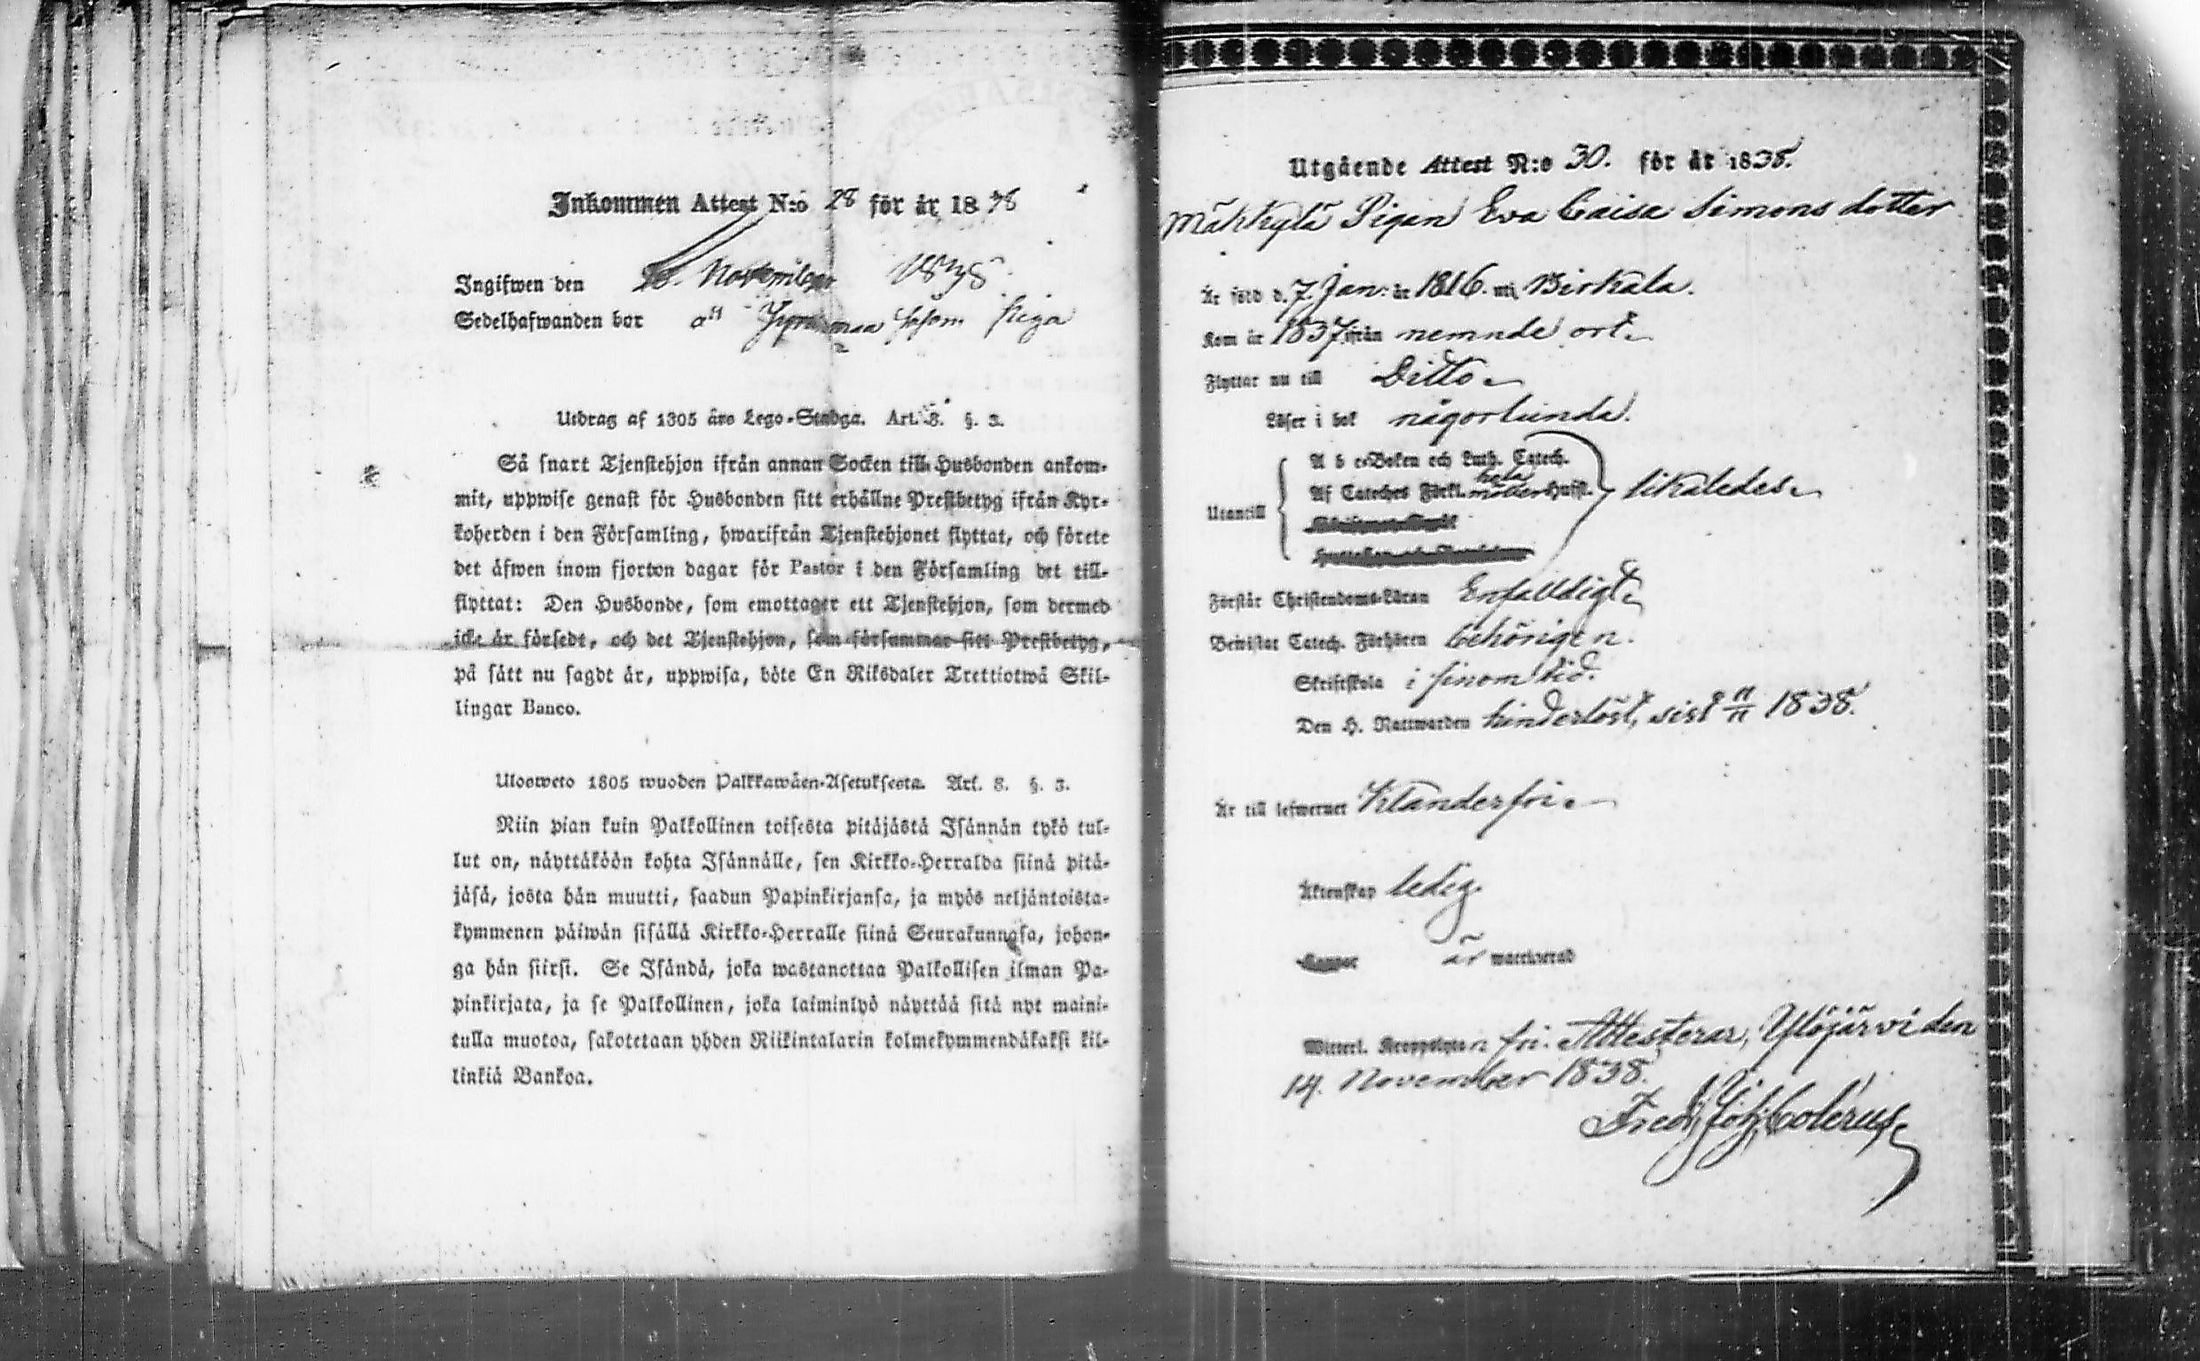 Inkommen Attest N:o 28 för år 1838
Ingifwen den November 1838.
Sedelhafwanden bor såsom Piga
Utdrag af 1805 års Lego-Stadga. Art. 8. §. 3.
Så snart Tjenstehjon ifrån annan Socken till Husbonden ankom-
mit, uppwise genast för Husbonden sitt erhållne Prestbetyg ifrån Kyr-
koherden i den Församling, hwarifrån Tjenstehjonet flyttat, och förete
det äfwen inom fjorton dagar för Pastor i den Församling det till-
flyttat: Den Husbonde, som emottager ett Tjenstehjon, som dermed
icke är försedt, och det Tjenstehjon, som försummar sitt Prestbetyg,
på sätt nu sagdt är, uppwisa, böte En Riksdaler Trettiotwå Skil-
lingar Banco.
Ulosweto 1805 wuoden Palkkawäen-Asetuksesta. Art. 8. §. 3.
Niin pian kuin Palkollinen toisesta pitäjästä Isännän tykö tul-
lut on, näyttäköön kohta Isännälle, sen Kirkko-Herralda siinä pitä-
jäsä, josta hän muutti, saadun Papinkirjansa, ja myös neljäntoista-
kymmenen päiwän sisällä Kirkko-Herralle siinä Seurakunnasa, johon-
ga hän siirsi. Se Isändä, joka wastanottaa Palkollisen ilman Pa-
pinkirjata, ja se Palkollinen, joka laiminlyö näyttää sitä nyt maini-
tulla muotoa, sakotetaan yhden Riikintalarin kolmekymmendäkaksi kil-
linkiä Bankoa.
Utgående Attest N:o 30. för år 1838.
Mäkkylä Pigan Eva Caisa Simons dotter
Är född d. 7. Jan: år 1816. uti Birkala.
Kom år 1837. ifrån nemnde ort.
Flyttar nu till Ditto
Läser i bok någorlunda.
A b c-Boken och Luth. Catech.
Af Cateches Förkl. hela Hufst. likaledes
Utantill
Förstår Christendoms-Läran Enfalldigt
Bewistat Catech. Förhören behörigen.
Skriftskola i sinom tid.
Den H. Nattwarden hinderlöst, sist 11/11 1838.
Är till lefwernet Klanderfri.
Äktenskap ledig.
är waccinerad
Witterl. Kroppslyten fri. Attesterar, Ylöjärvi den
14. November 1838.
Fred. Joh. Colerus